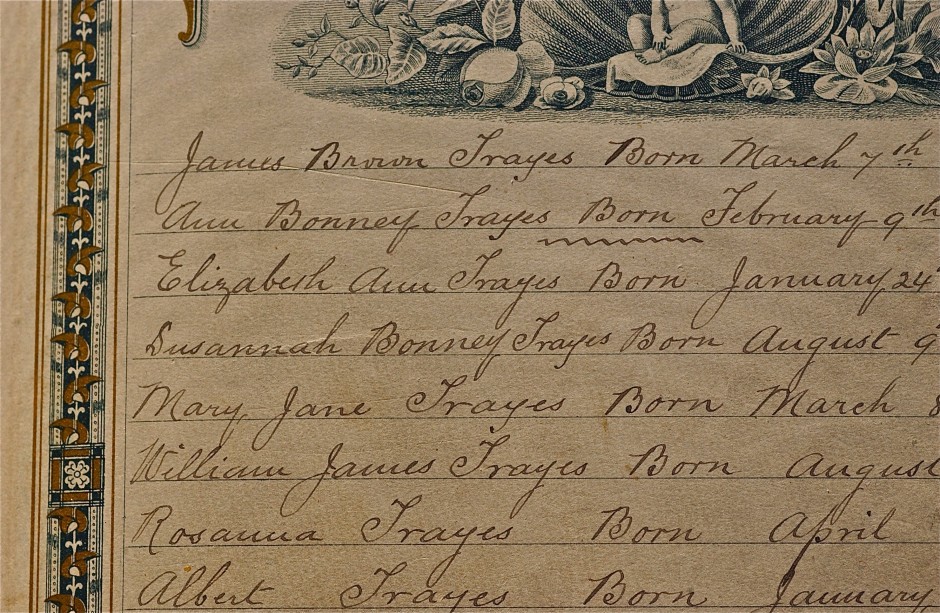 James Brown Trayes Born March 7th
Ann Bonney Trayes Born February 9th
Elizabeth Ann Trayes Born January 24
Susannah Bonney Trayes Born August 9
Mary Jane Trayes Born March 8
William James Trayes Born August
Rosanna Trayes Born April
Albert Trayes Born January